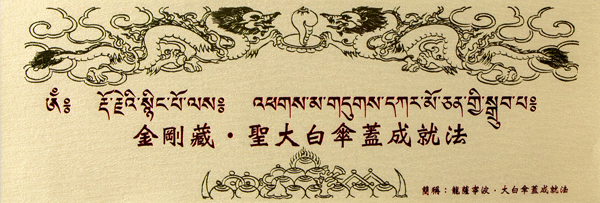 ༀ༔ རྡོ་རྗེའི་སྙིང་པོ་ལས༔ འཕགས་མ་གདུགས་དཀར་མོ་ཅན་གྱི་སྒྲུབ་པ༔
金剛藏・聖大白傘蓋成就法
簡稱：龍薩寧波・大白傘蓋成就法